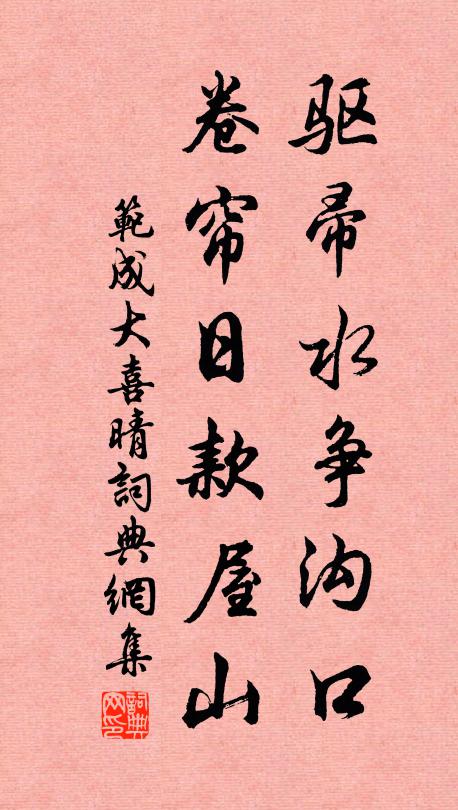 驱帚水争沟口
卷帘日款屋山
範成大喜晴詞典網集
詞典
网印